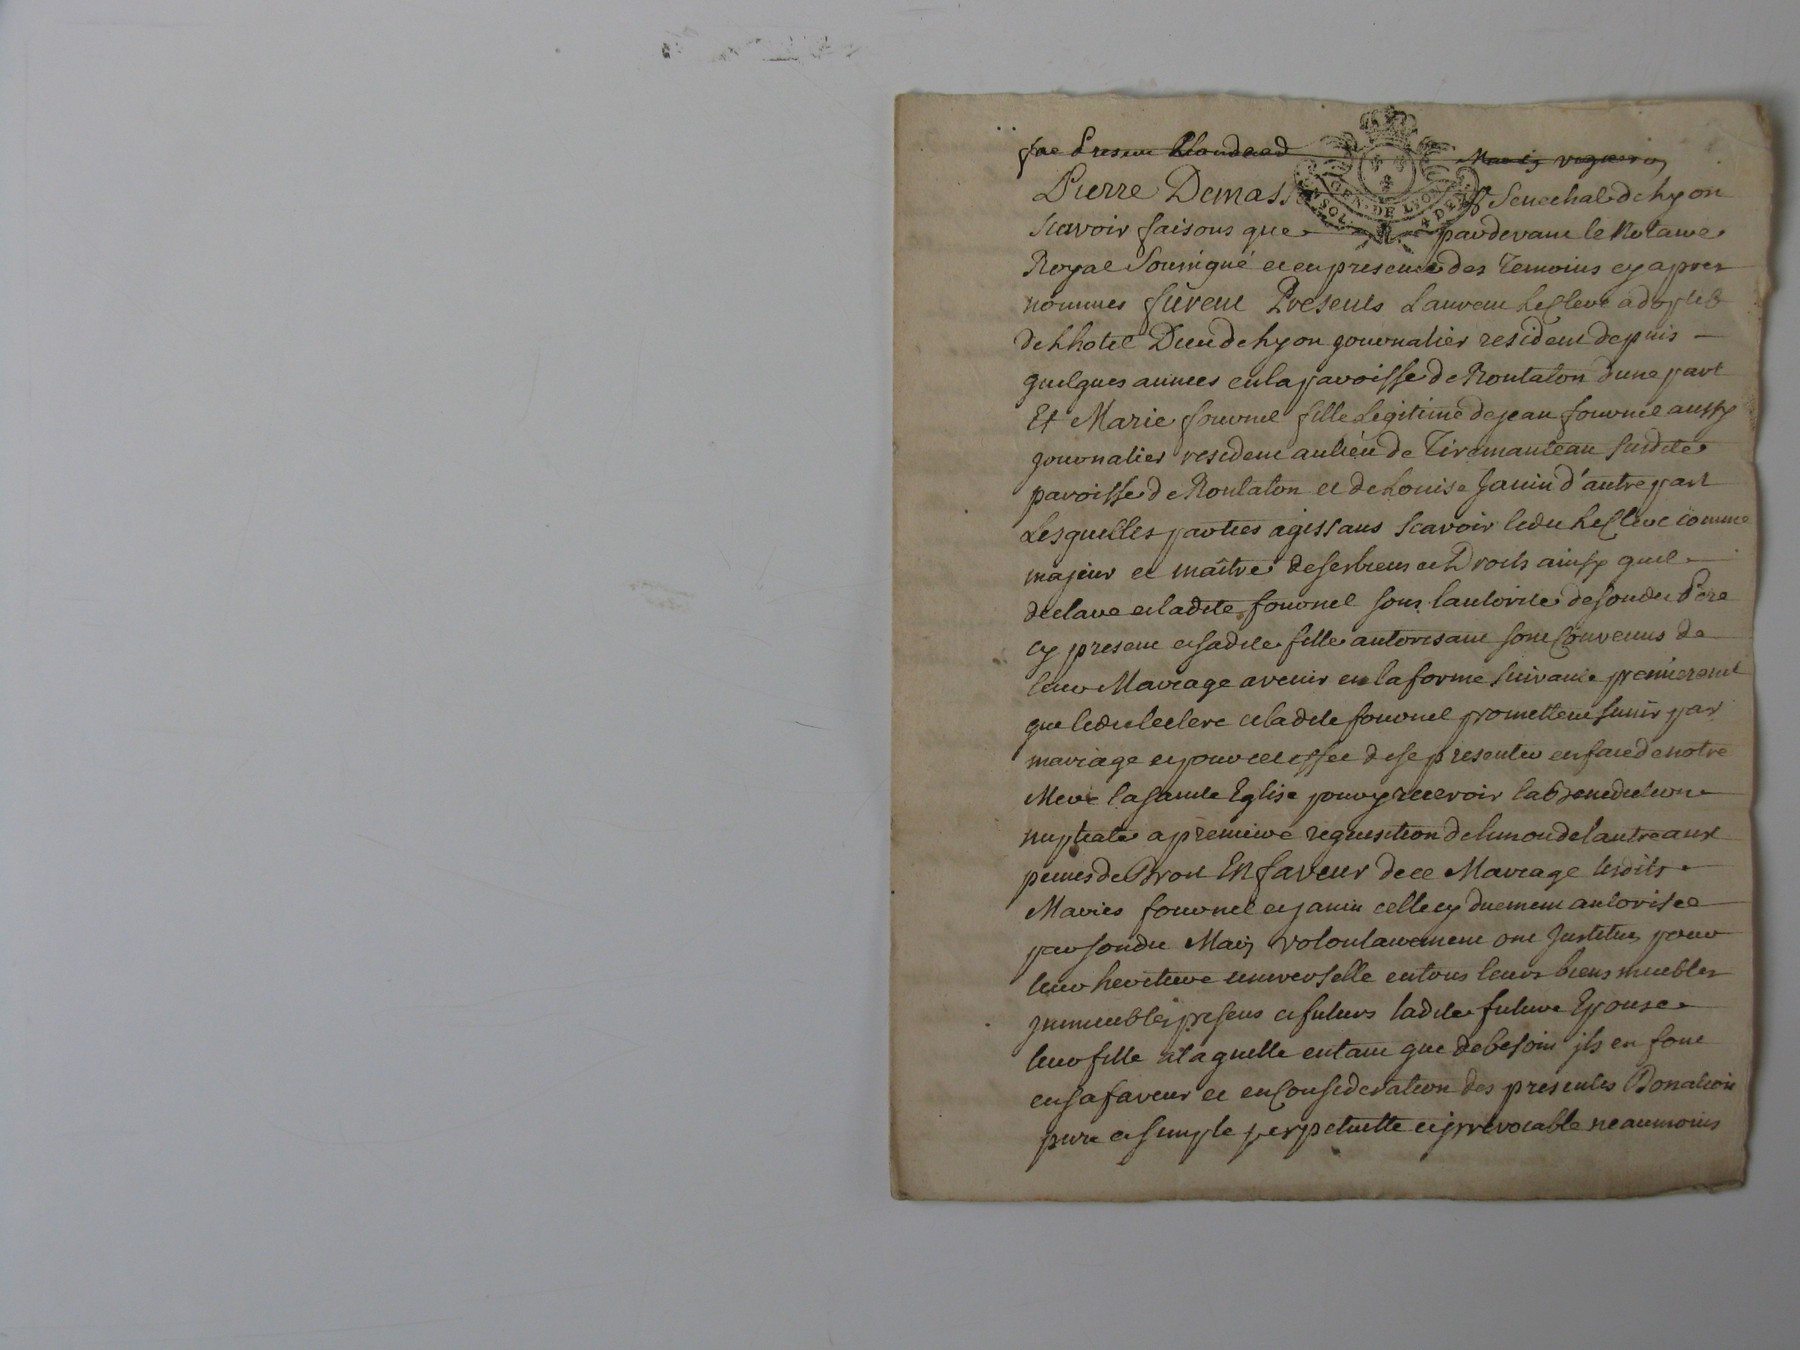 Pierre Demass Senechal de Lyon
GEN. DE LYON
SOL. 4 DEN
Scavoir faisons que pardevant le Notaire
Royal Sousigné et en presence des Temoins cy apres
nommes furent Presents Laurent Leclerc adoptif
de Lhotel Dieu de Lyon journalier resident depuis
quelques années en la paroisse de Rontalon d'une part
Et Marie fournel fille Legitime de jean fournel aussy
journalier resident au lieu de Tiremanteau susdite
paroisse de Rontalon et de Louise Janin d'autre part
Lesquelles parties agissans scavoir ledit Leclerc comme
majeur et maître de ses biens et Droits ainsy quil
declare et ladite fournel sous lautorité de sondit Pere
cy present et sadite fille autorisant sont Convenus de
leur Mariage avenir en la forme suivante premierement
que ledit leclerc et ladite fournel promettent sunir par
mariage et pour cet effet de se presenter en face de notre
Mere la sainte Eglise pour y recevoir la benediction
nuptiale a premiere requisition de lun ou de lautre aux
peines de Droit En faveur de ce Mariage lesdits
Maries fournel et janin celle cy duement autorisée
par sondit Mary volontairement ont Institué pour
leur heritiere universelle en tous leurs biens meubles
jmmeubles presens et futurs ladite future Epouse
leur fille a laquelle entant que de besoin jls en font
en sa faveur et en Consideration des presentes Donation
pure et simple perpetuelle et jrrevocable neaumoins